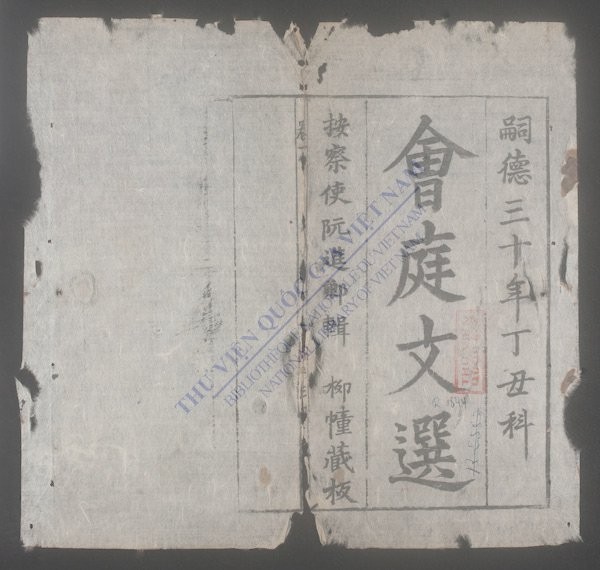 嗣德三十年丁丑科
會庭文選
按察使阮進鄉輯 柳幢藏板
THƯ VIỆN QUỐC GIA VIỆT NAM
BIBLIOTHÈQUE NATIONALE DU VIETNAM
NATIONAL LIBRARY OF VIETNAM